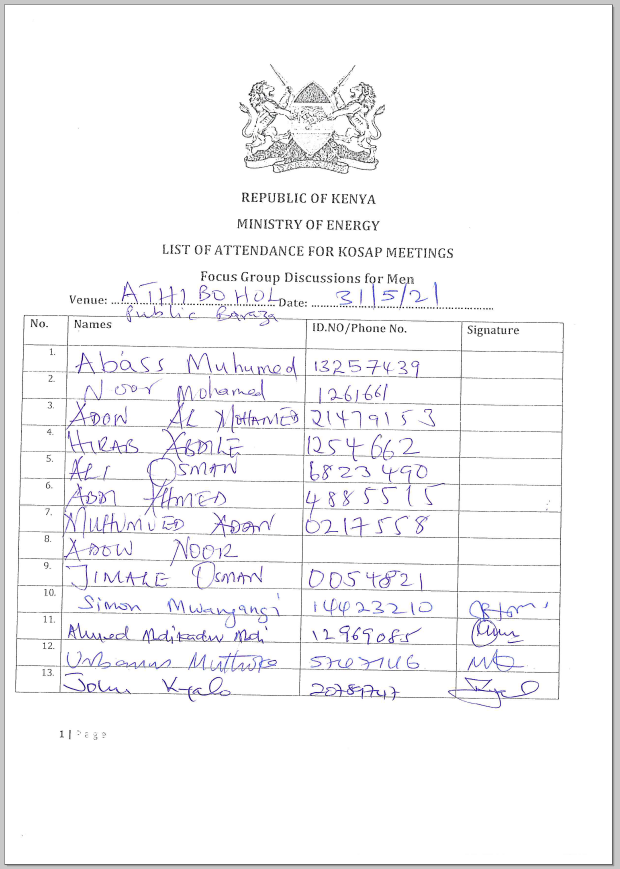 REPUBLIC OF KENYA
MINISTRY OF ENERGY
LIST OF ATTENDANCE FOR KOSAP MEETINGS
Focus Group Discussions for Men
Venue: ATHI BOHOL Date: 31/5/21
Public Baraza
No. Names ID.NO/Phone No. Signature
1. Abass Muhumed 13257439
2. Noor Mohamed 1261661
3. ADOW AL MOHAMED 21479153
4. HIRAB ABDILE 1254662
5. ALI OSMAN 6823490
6. ABDI AHMED 4885515
7. MUHUMUED ADAN 0217558
8. ADOW NOOR
9. JIMALE OSMAN 0054821
10. Simon Mwangangi 14423210
11. Ahmed Abdikadir Abdi 12969085
12. Urbanus Muthoka 5767146
13. John Kyalo 20789747
1 | Page